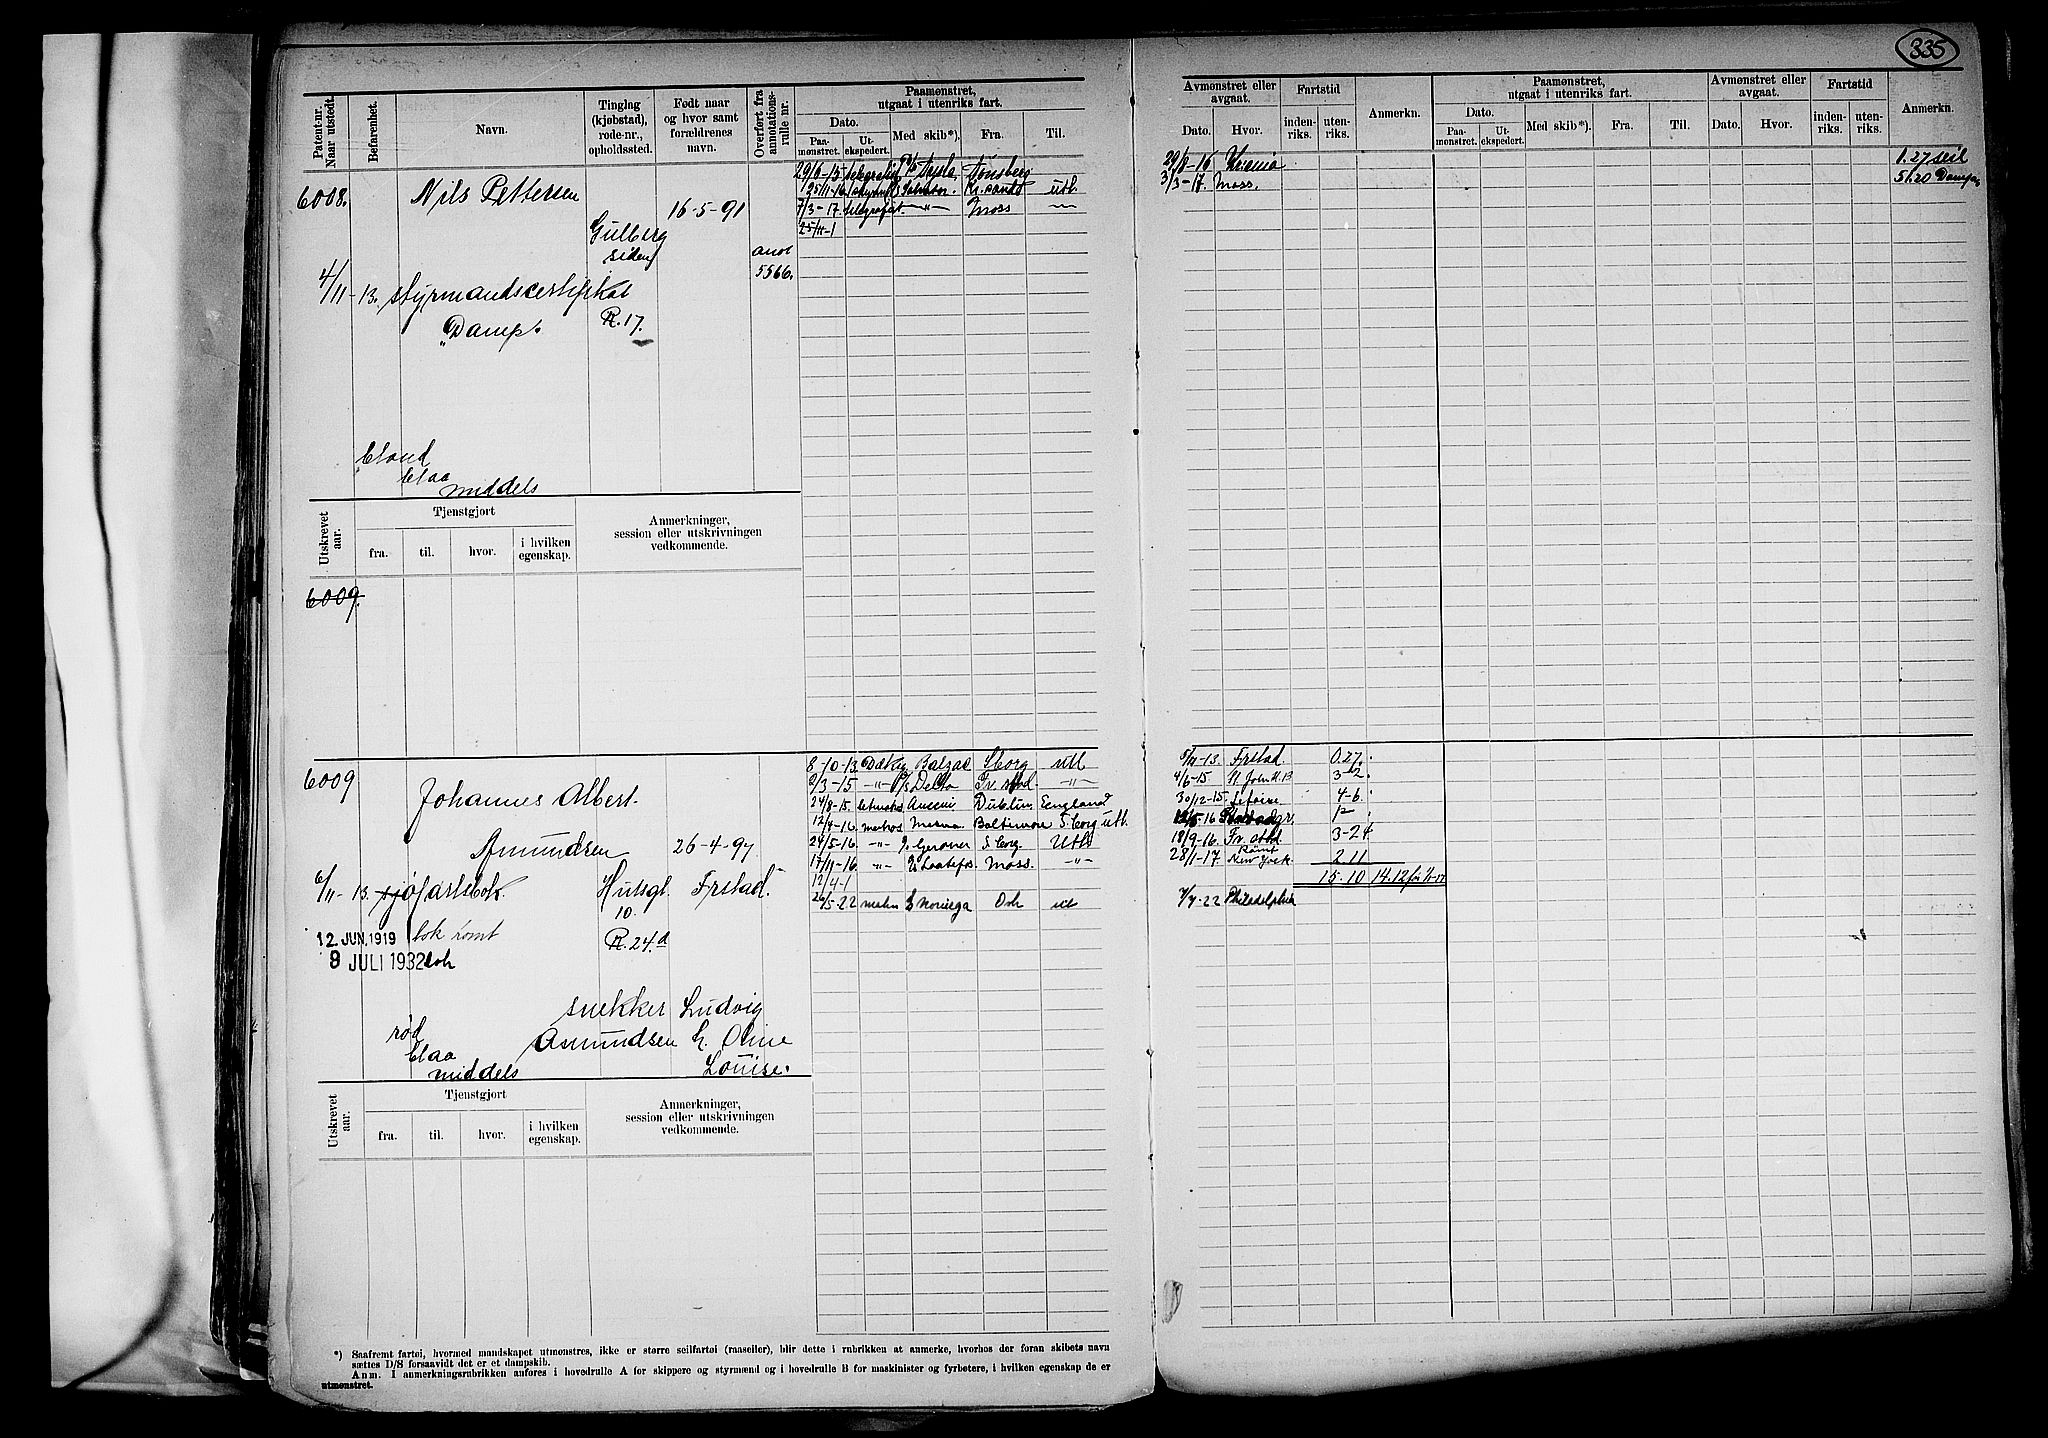 335
Patent-nr. Naar utstedt.
Befarenhet.
Navn.
Tinglag (kjøbstad), rode-nr., opholdssted.
Født naar og hvor samt forældrenes navn.
Overført fra annotations-rulle nr.
Paamønstret, utgaat i utenriks fart.
Dato.
Paa-mønstret.
Ut-ekspedert.
Med skib*).
Fra.
Til.
Avmønstret eller avgaat.
Dato.
Hvor.
Fartstid
inden-riks.
uten-riks.
Anmerkn.
Paamønstret, utgaat i utenriks fart.
Dato.
Paa-mønstret.
Ut-ekspedert.
Med skib*).
Fra.
Til.
Avmønstret eller avgaat.
Dato.
Hvor.
Fartstid
inden-riks.
uten-riks.
Anmerkn.
6008.
Nils Pettersen
16-5-91
Gulberg
siden
anot
5566.
4/11-13. styrmandscertifikat
"Damp".
R. 17.
blond
blaa
middels
29/6-15 Tønsberg
25/11-16 Kr.sand utl.
7/3-17. telegrafist —"— Moss —"—
25/11-1
29/8-16 Krania
3/3-17. Moss.
1.27 seil
51.20 Damp
Utskrevet aar.
Tjenstgjort
fra.
til.
hvor.
i hvilken egenskap.
Anmerkninger, session eller utskrivningen vedkommende.
6009.
6009
Johannes Albert.
Amundsen
26-4-97
6/11-13. sjøfartsbok.
Frstad.
10.
12 JUN. 1919 bok rømt
R. 24.d
9 JULI 1932 bok
snekker Ludvig
Asmundsen h. Oline
Louise.
rød
blaa
middels
8-10-13 Dæksg Balzac Sborg utl
9/3-15 —"— P/S Delta Fr. stad. —"—
24/8-15. Dublin. England
12/4-16. matros Baltimore S.borg utl.
24/5-16 —"— S. borg. Utl.
17/11-16. —"— Moss. —"—
12/4-1
26/5-22 Norvega utl
5/11-13. Frstad. 0.27.
4/6-15 St. John N.B 3-2.
30/12-15. 4-6.
18/9-16. Fr. stad. 3-24.
28/1-17. Rømt New York. 2 11
15. 10 14.12
7/7-22 Philadelphia
Utskrevet aar.
Tjenstgjort
fra.
til.
hvor.
i hvilken egenskap.
Anmerkninger, session eller utskrivningen vedkommende.
*) Saafremt fartøi, hvormed mandskapet utmønstres, ikke er større seilfartøi (raaseiler), blir dette i rubrikken at anmerke, hvorhos der foran skibets navn
sættes D/S forsaavidt det er et dampskib.
Anm. I anmerkningsrubrikken anføres i hovedrulle A for skippere og styrmænd og i hovedrulle B for maskinister og fyrbøtere, i hvilken egenskap de er
utmønstret.